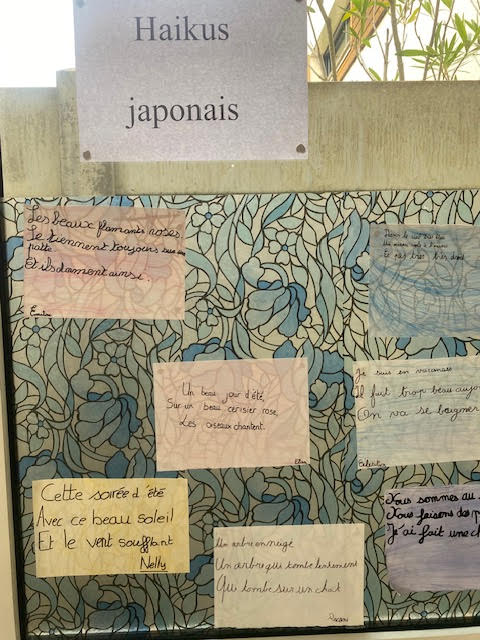 Haikus
japonais
Les beaux flamants roses
Se tiennent toujours sur une
patte
Et ils dament ainsi.
Et pas très très droit
Un beau jour d'été,
Sur un beau cerisier rose,
Les oiseaux chantent.
Je suis en vacances
Il fait trop beau aujou
On va se baigner
Cette soirée d'été
Avec ce beau soleil
Et le vent soufflant
Nelly
Un arbre enneigé
Un arbre qui tombe lentement
Qui tombe sur un chat
Nous sommes au
Nous faisons des p
J'ai fait une ch